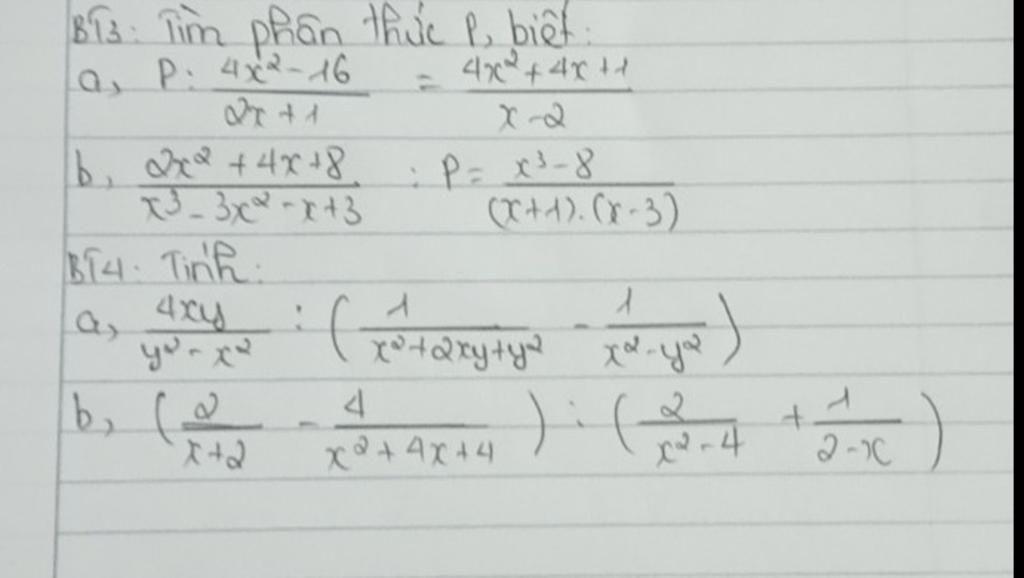 BT3: Tìm phân thức P, biết:
a, P : (4x² - 16)/(2x + 1) = (4x² + 4x + 1)/(x - 2)
b, (2x² + 4x + 8)/(x³ - 3x² - x + 3) : P = (x³ - 8)/((x + 1).(x - 3))
BT4: Tính:
a, 4xy/(y² - x²) : (1/(x² + 2xy + y²) - 1/(x² - y²))
b, (2/(x + 2) - 4/(x² + 4x + 4)) : (2/(x² - 4) + 1/(2 - x))